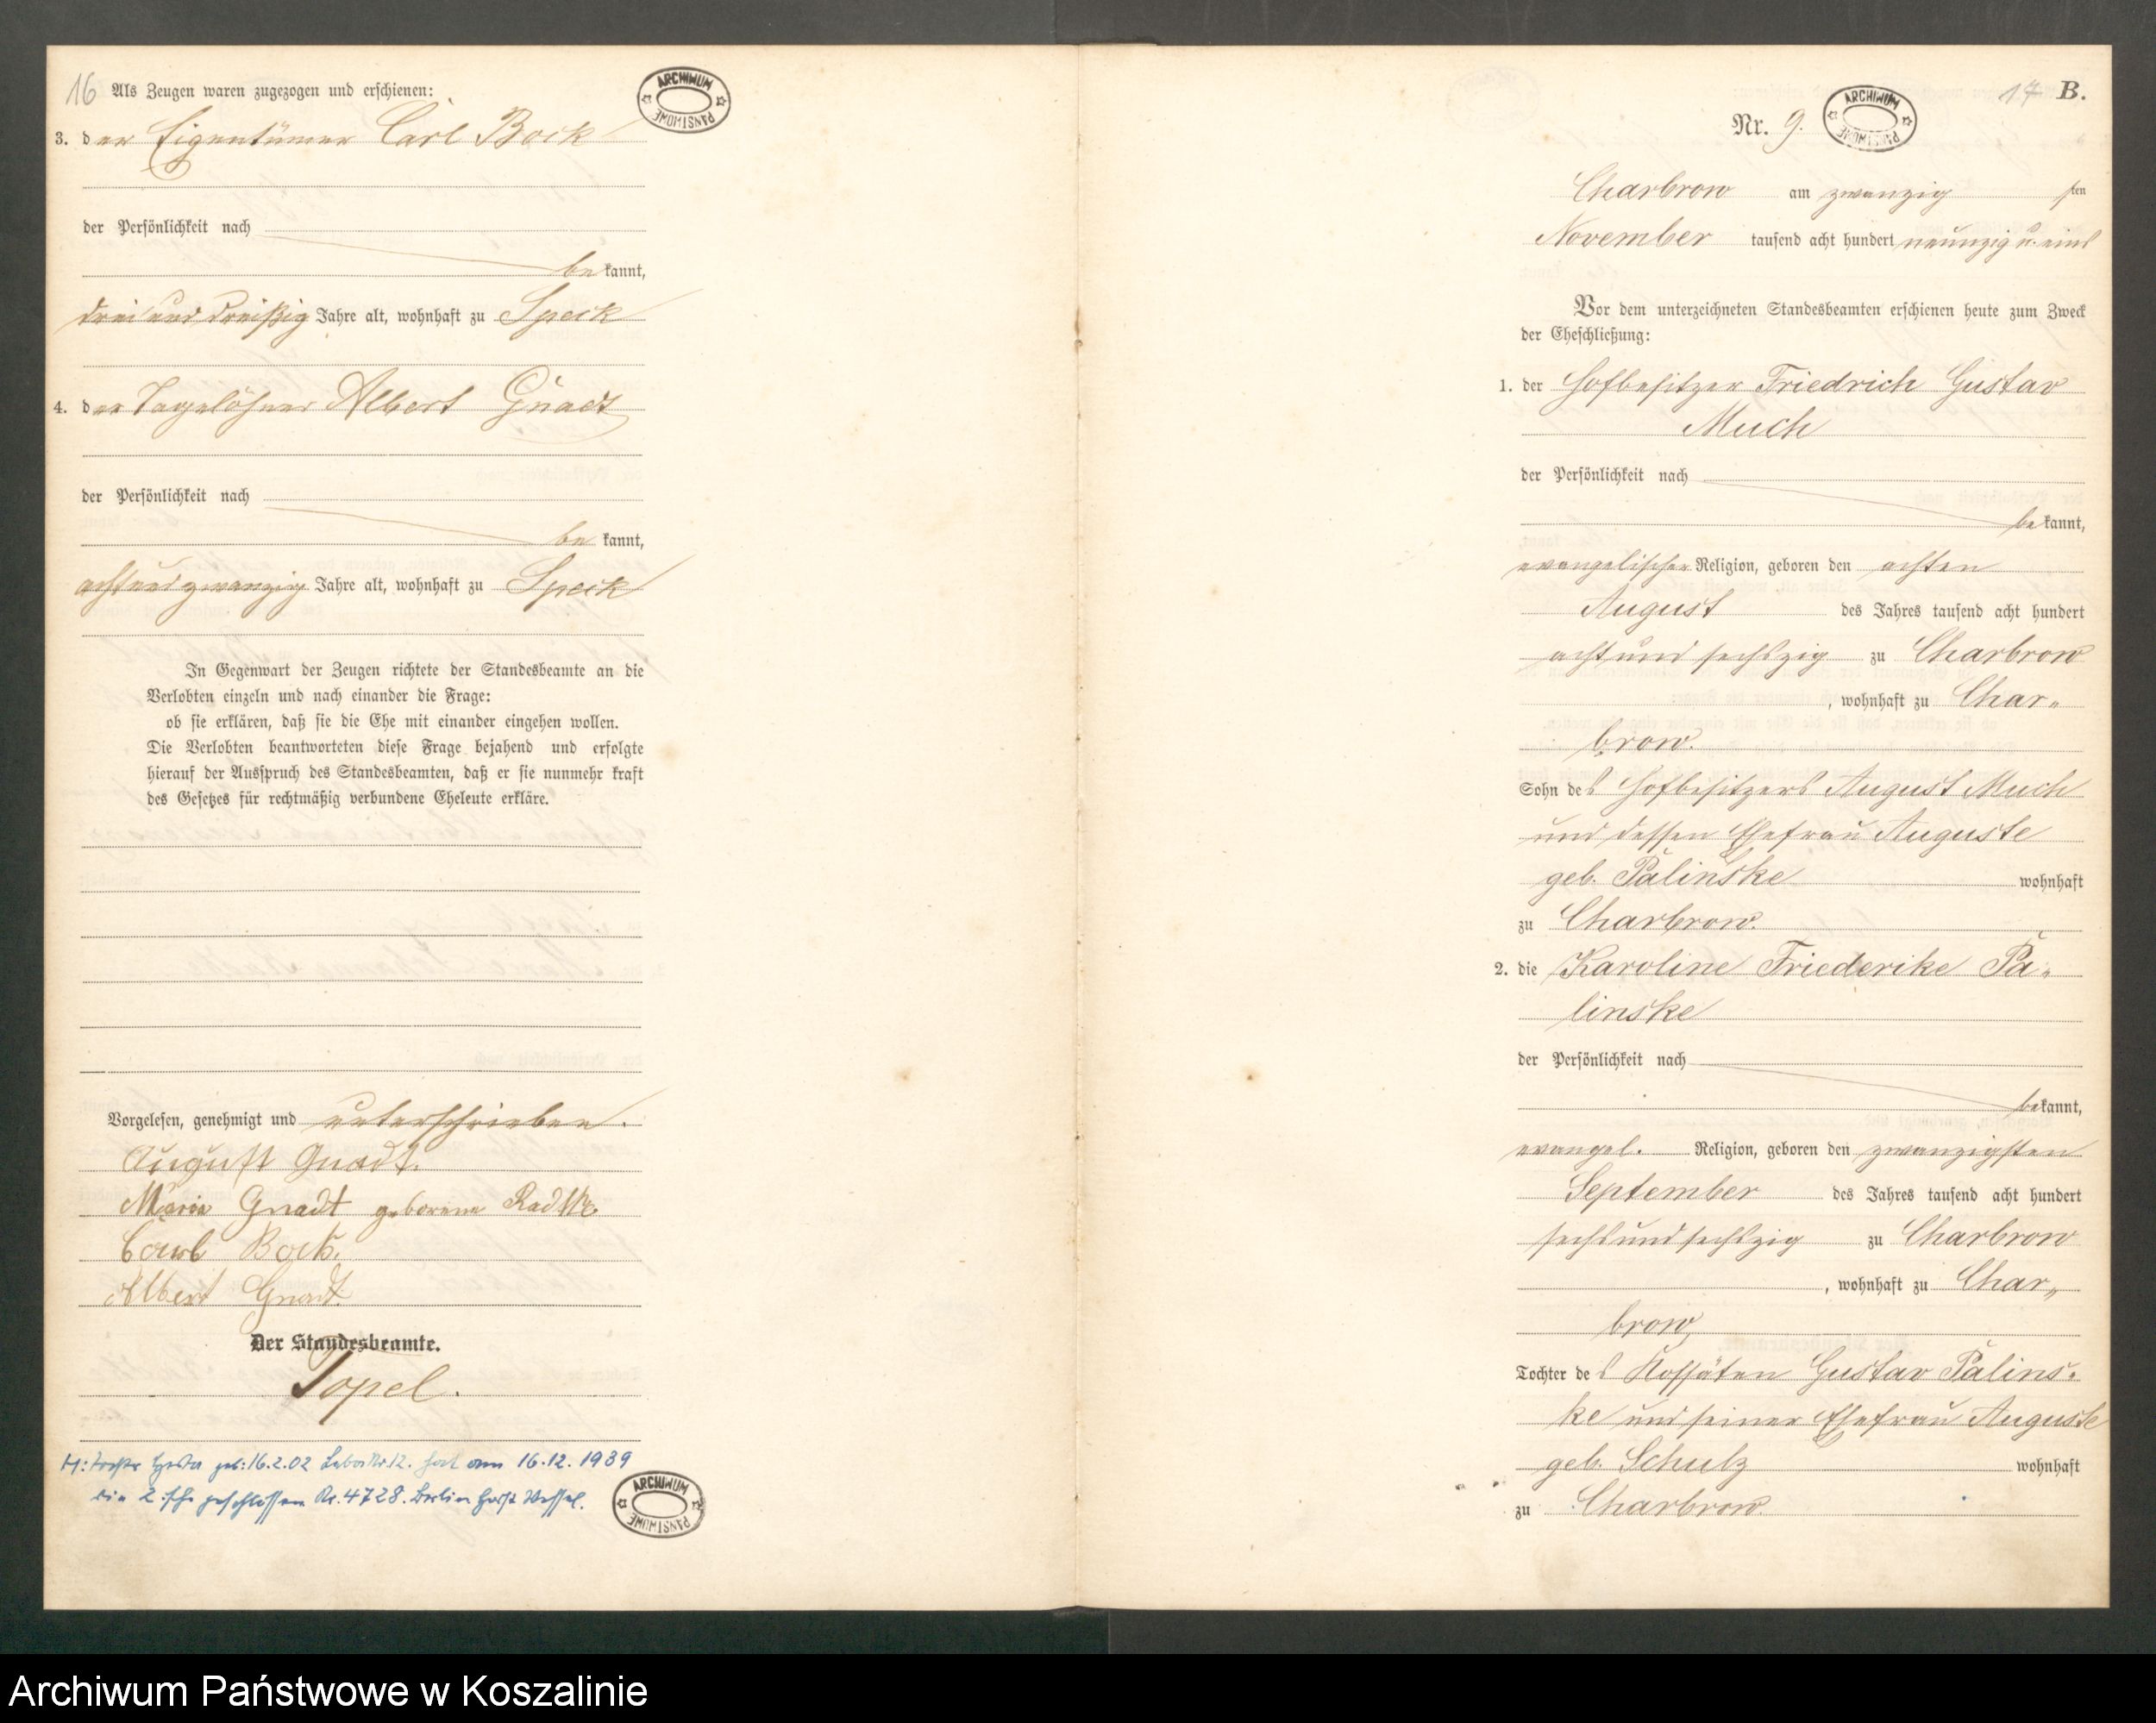 16 Als Zeugen waren zugezogen und erschienen:
ARCHIWUM PAŃSTWOWE
3. der Eigentümer Carl Bock
der Persönlichkeit nach
be kannt,
drei und dreißig Jahre alt, wohnhaft zu Speck
4. der Tagelöhner Albert Gnadt
der Persönlichkeit nach
be kannt,
achtundzwanzig Jahre alt, wohnhaft zu Speck
In Gegenwart der Zeugen richtete der Standesbeamte an die
Verlobten einzeln und nach einander die Frage:
ob sie erklären, daß sie die Ehe mit einander eingehen wollen.
Die Verlobten beantworteten diese Frage bejahend und erfolgte
hierauf der Ausspruch des Standesbeamten, daß er sie nunmehr kraft
des Gesetzes für rechtmäßig verbundene Eheleute erkläre.
Vorgelesen, genehmigt und unterschrieben.
August Gnadt.
Marie Gnadt geborene Radtke
Carl Bock.
Albert Gnadt.
Der Standesbeamte.
Topel.
H: Tochter geb: 16.2.02 Nr 12. hat am 16.12.1939
die 2. Ehe geschlossen Nr. 4728. Berlin Horst Wessel.
ARCHIWUM PAŃSTWOWE
17 B.
Nr. 9.
ARCHIWUM PAŃSTWOWE
Charbrow am zwanzig sten
November tausend acht hundert neunzig u. eins
Vor dem unterzeichneten Standesbeamten erschienen heute zum Zweck
der Eheschließung:
1. der Hofbesitzer Friedrich Gustav
Much
der Persönlichkeit nach
be kannt,
evangelischer Religion, geboren den achten
August des Jahres tausend acht hundert
acht und sechszig zu Charbrow
, wohnhaft zu Char„
brow.
Sohn des Hofbesitzers August Much
und dessen Ehefrau Auguste
geb. Palinske wohnhaft
zu Charbrow.
2. die Karoline Friederike Pa„
linske
der Persönlichkeit nach
be kannt,
evangel. Religion, geboren den zwanzigsten
September des Jahres tausend acht hundert
sechs und sechszig zu Charbrow
, wohnhaft zu Char„
brow,
Tochter des Kossäten Gustav Palins„
ke und seiner Ehefrau Auguste
geb. Schulz wohnhaft
zu Charbrow.
Archiwum Państwowe w Koszalinie